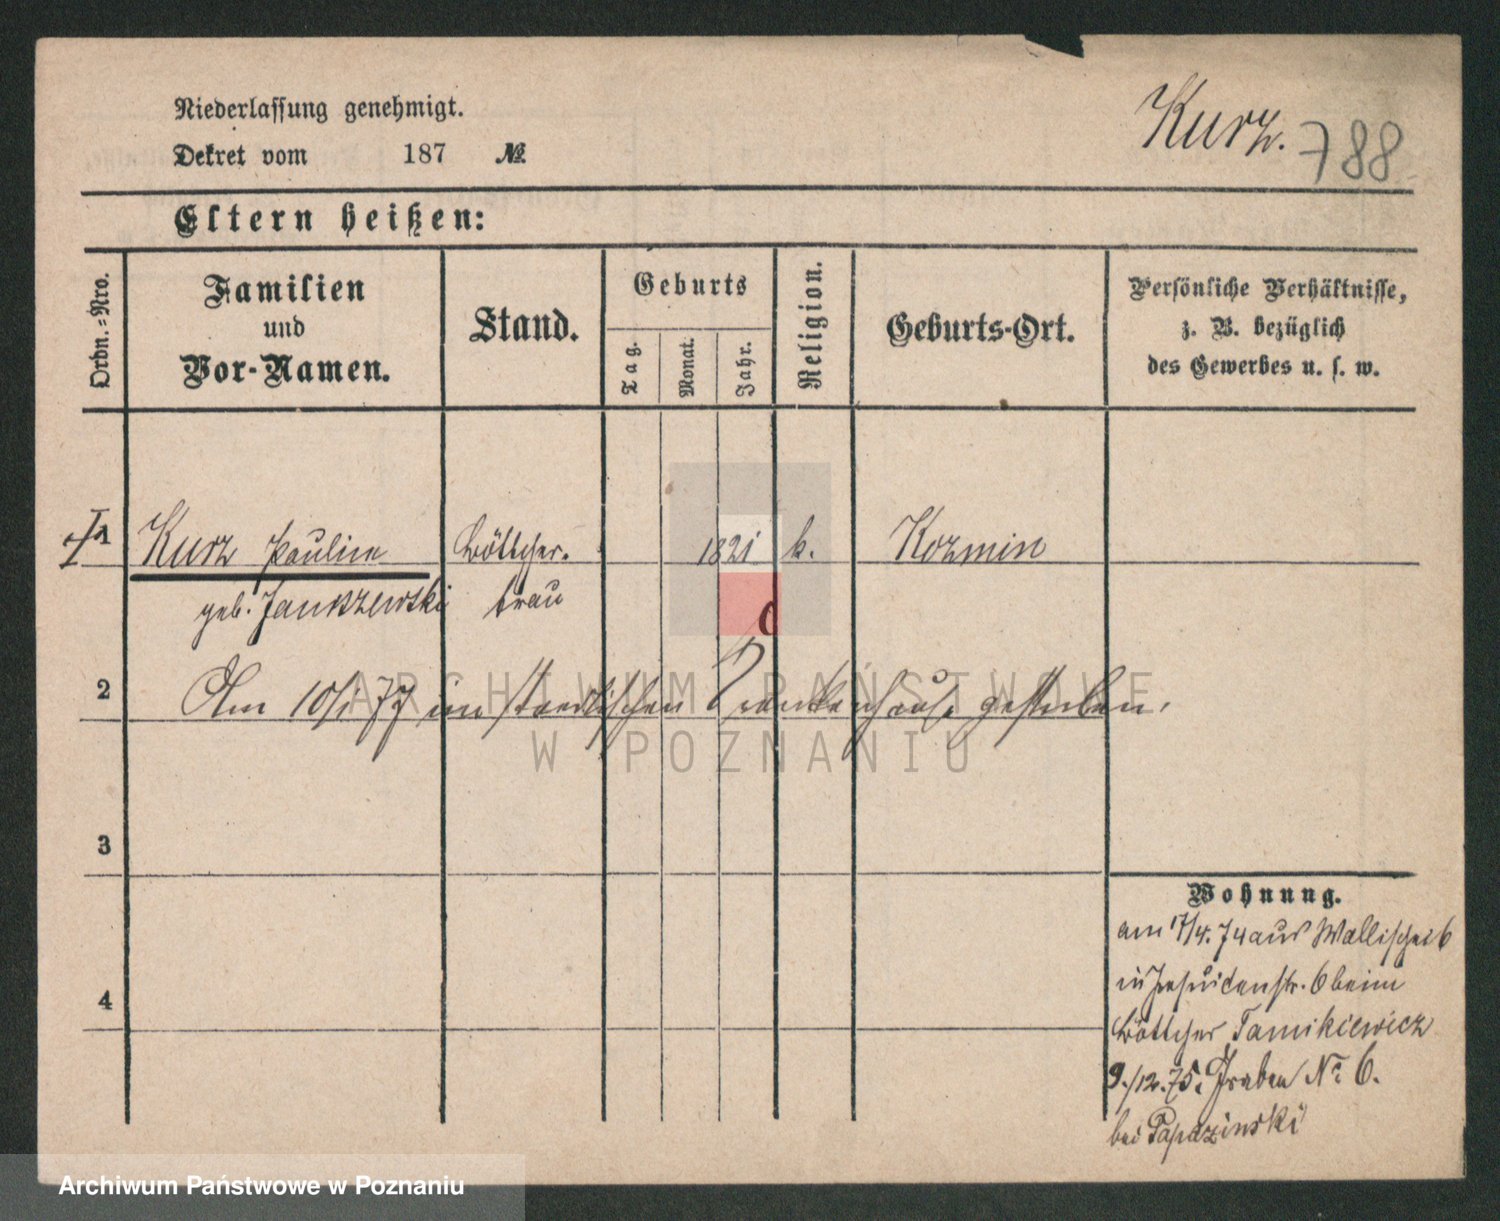 Niederlassung genehmigt.
Dekret vom 187 №
Kurz. 788
Eltern heißen:
Ordn.-Nro.
Familien
und
Vor-Namen.
Stand.
Geburts
Tag.
Monat.
Jahr.
Religion.
Geburts-Ort.
Persönliche Verhältnisse,
z. B. bezüglich
des Gewerbes u. s. w.
1 Kurz Pauline Böttcher- 1821 k. Kozmin
geb. Januszewski frau
2 Am 10/1 77 im staedtischen Krankenhause gestorben.
3
4
Wohnung.
am 17/4. 74 aus Wallischei 6
in Jesuitenstr. 6 beim
Böttcher Tamikiewicz
9./12. 75. Graben No 6.
bei
ARCHIWUM PAŃSTWOWE
W POZNANIU
Archiwum Państwowe w Poznaniu